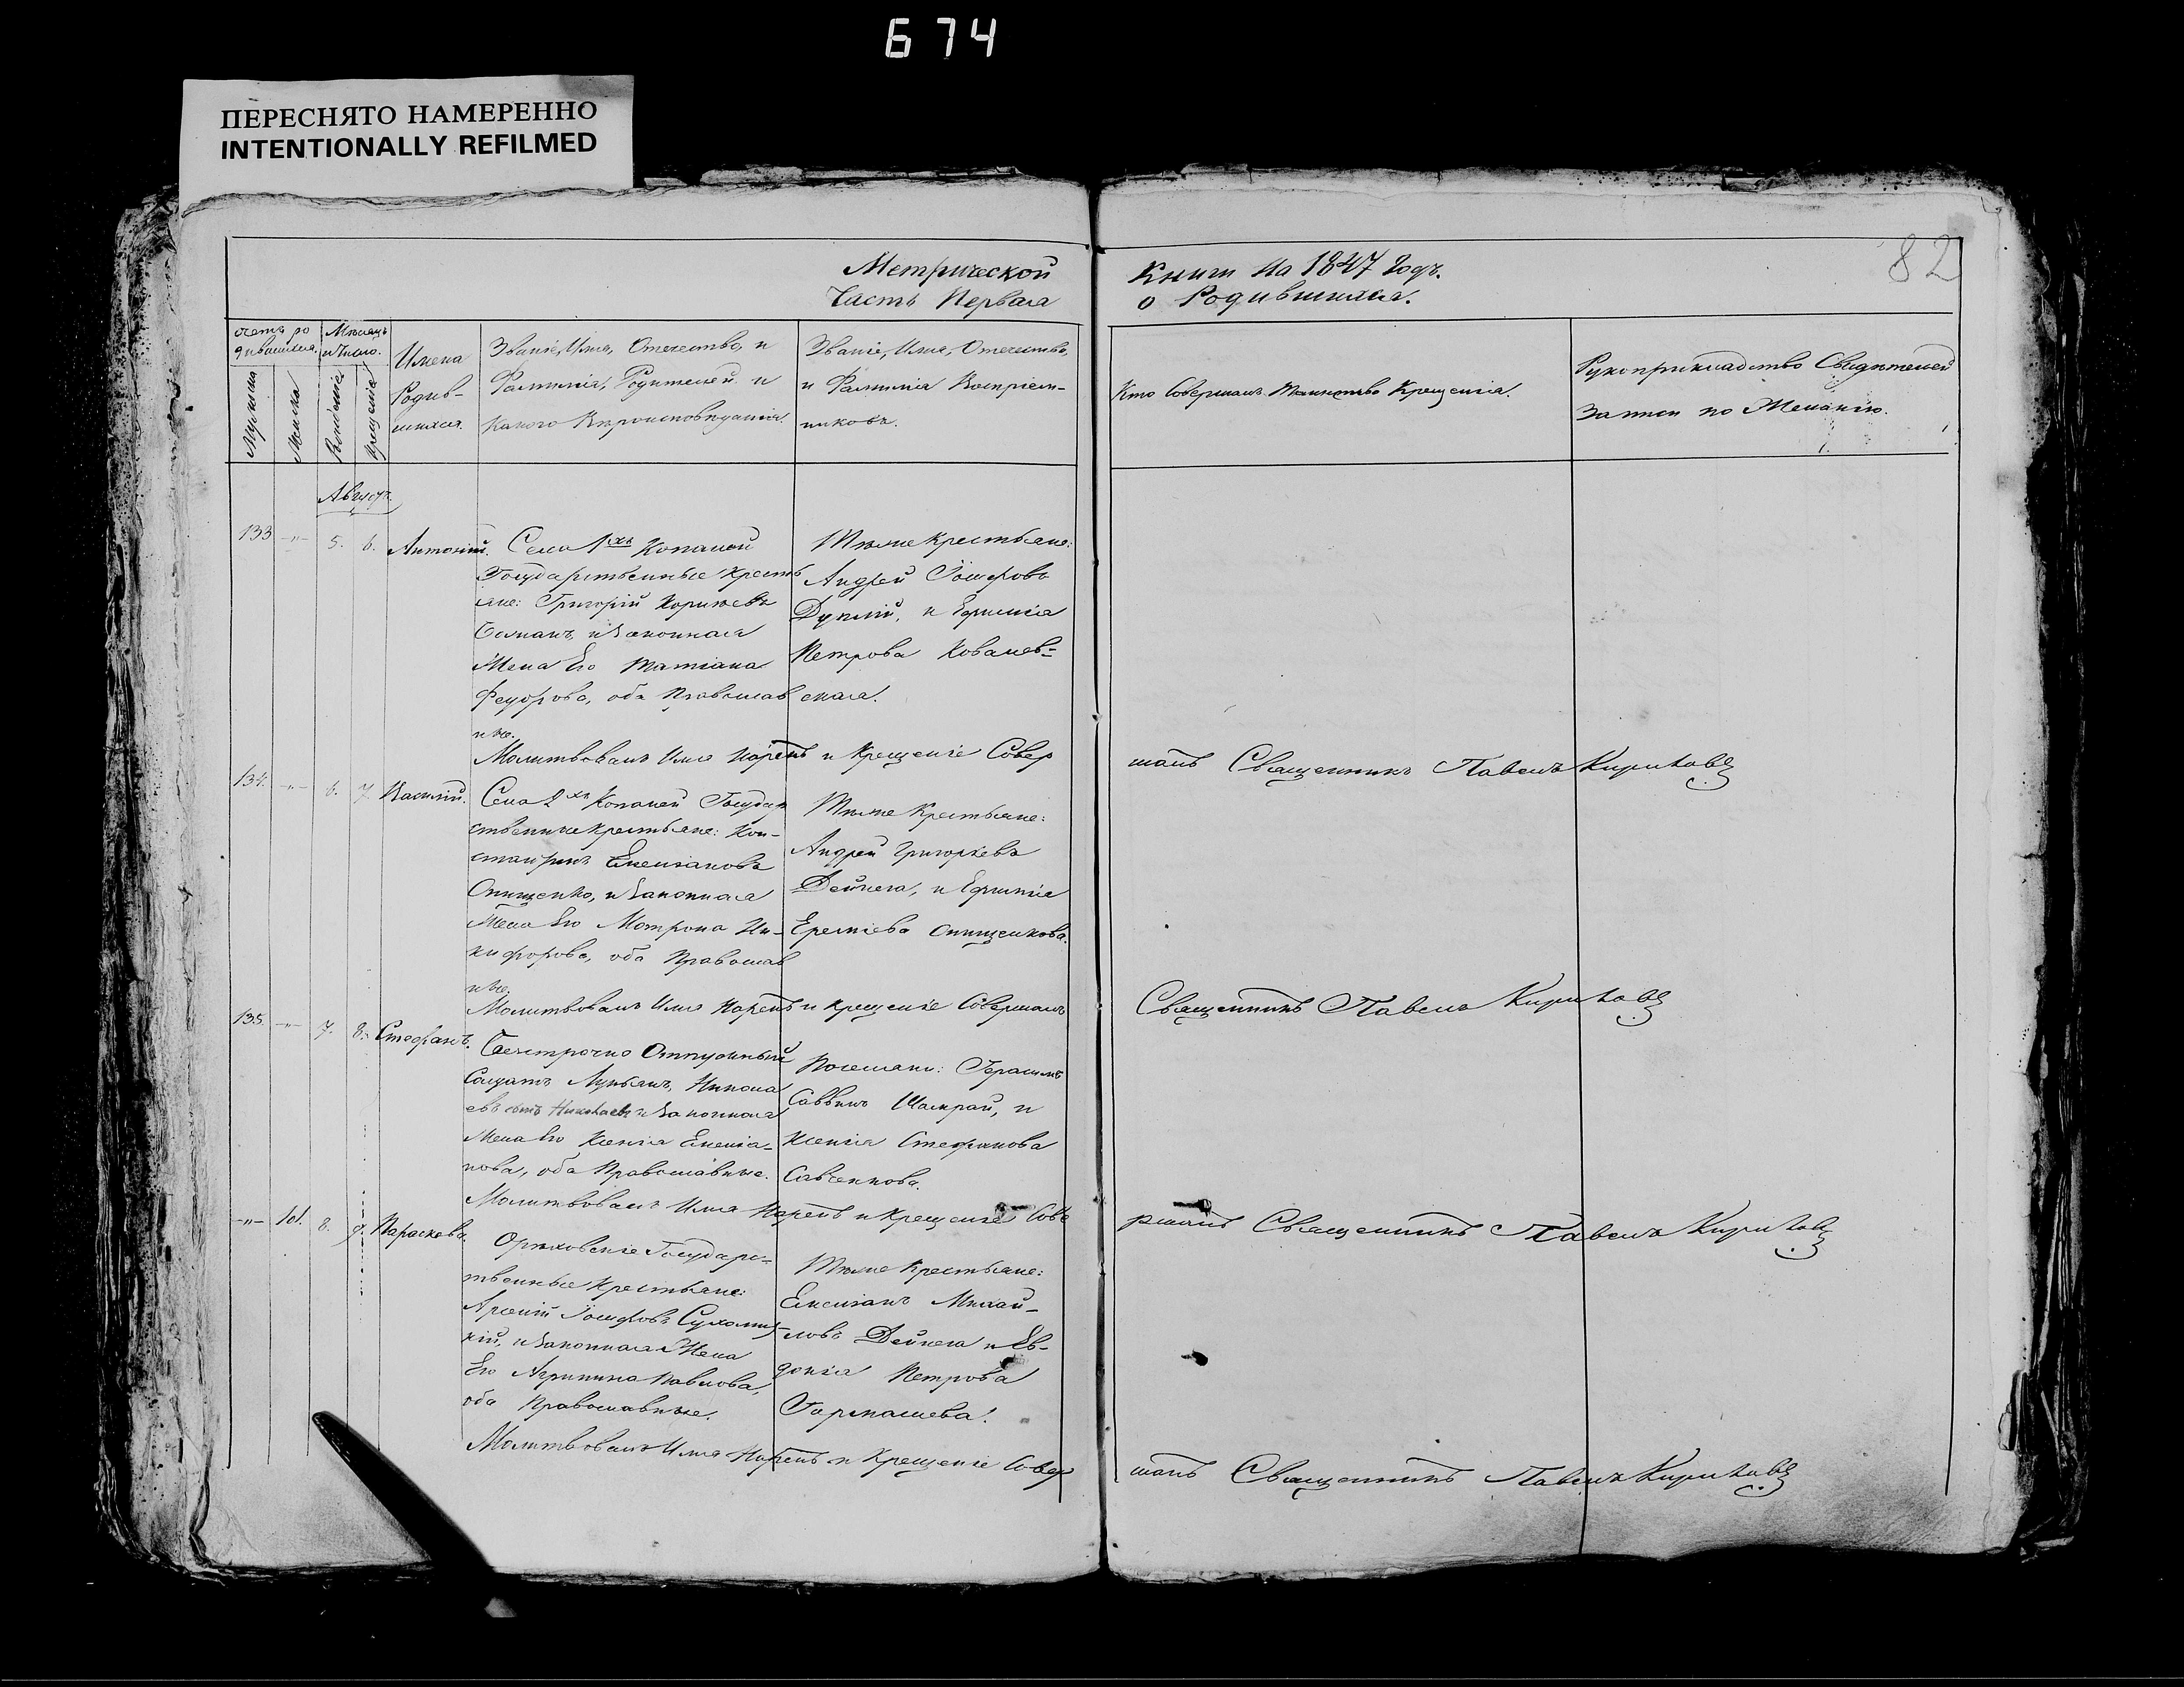 674
ПЕРЕСНЯТО НАМЕРЕННО
INTENTIONALLY REFILMED
82
Метрической Книги на 1847 Годъ.
Часть Первая о Родившихся.
Счетъ родившихся.
Мужеска
Женска
Мѣсяцъ и Число.
Рожденія
Крещенія
Имена
Родив-
шихся.
Званіе, Имя, Отечество, и
Фамилія, Родителей и
Какого Вѣроисповѣданія.
Званіе, Имя, Отечество,
и Фамилія Воспріем-
никовъ.
Кто Совершалъ Таинство Крещенія.
Рукоприкладство Свидѣтелей
Записи по Желанію.
Августъ.
133 -"- 5. 6. Антоній.
Села 1хъ Копаней
Государственные Кресть
яне: Григорій
и Законная
Жена Его Татіана
Федорова, оба Православ
ные.
Тѣже Крестьяне:
Андрей Іосифовъ
и Ефимія
Петрова Ковалев=
ская.
Молитвовалъ Имя Нарекъ и Крещеніе Совер
шалъ Священникъ Павелъ Кириловъ
134. -"- 6. 7 Василій.
Села 2хъ Копаней Государ
ственные Крестьяне: Кон-
стантинъ Емеліановъ
Онищенко, и Законная
Жена Его Мотрона Ни-
кифорова, оба Православ
ные.
Тѣже Крестьяне:
Андрей Григорьевъ
Дейнега, и Ефимія
Еремѣева Онищенкова.
Молитвовалъ Имя Нарекъ и Крещеніе Совершалъ
Священникъ Павелъ Кириловъ
135. -"- 7. 8. Стефанъ.
Безсрочно Отпускный
Солдатъ Лукьянъ, Никола
евъ сынъ Николаевъ и Законная
Жена Его Ксенія Емелiа-
нова, оба Православные.
Поселяне: Герасимъ
Саввинъ Шамрай, и
Ксенія Стефанова
Савченкова.
Молитвовалъ Имя Нарекъ и Крещеніе Сове
ршалъ Священникъ Павелъ Кириловъ
-"- 101. 8. 9. Параскева.
Орѣховскіе Государс=
твенные Крестьяне:
Арсеній Іосифовъ
и Законная Жена
Его Агрипина Павлова,
оба Православные.
Тѣже Крестьяне:
Емеліанъ Михай-
ловъ Дейнега и Ев-
докія Петрова
Гармашева.
Молитвовалъ Имя Нарекъ и Крещеніе Совер
шалъ Священникъ Павелъ Кириловъ